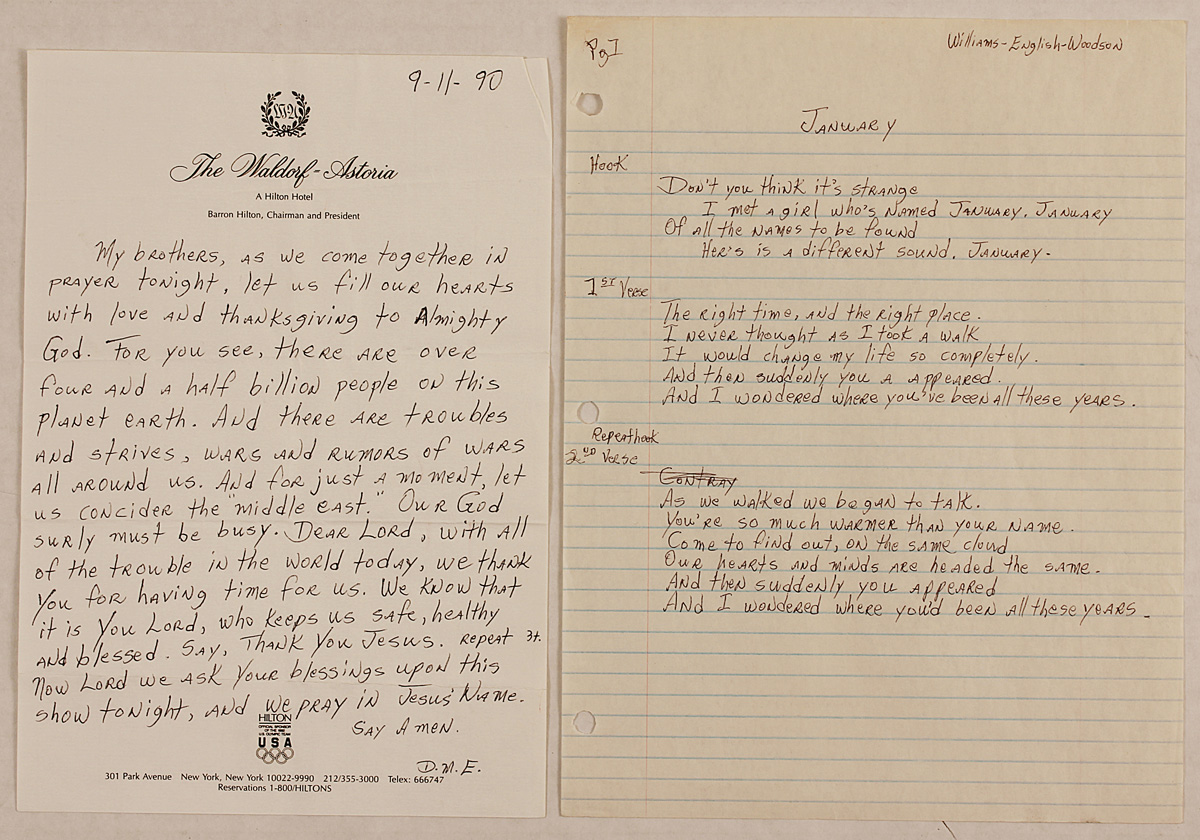 9-11-90
The Waldorf-Astoria
A Hilton Hotel
Barron Hilton, Chairman and President
My brothers, as we come together in
prayer tonight, let us fill our hearts
with love and thanksgiving to Almighty
God. For you see, there are over
four and a half billion people on this
planet earth. And there are troubles
and strives, wars and rumors of wars
all around us. And for just a moment, let
us concider the "middle east." Our God
surly must be busy. Dear Lord, with all
of the trouble in the world today, we thank
You for having time for us. We know that
it is You Lord, who keeps us safe, healthy
and blessed. Say, Thank You Jesus. Repeat 3t.
Now Lord we ask Your blessings upon this
show tonight, and we pray in Jesus' Name.
Say Amen.
D.M.E.
HILTON
OFFICIAL SPONSOR
OF THE 1992
U.S. OLYMPIC TEAM
USA
301 Park Avenue New York, New York 10022-9990 212/355-3000 Telex: 666747
Reservations 1-800/HILTONS
Pg I
Williams-English-Woodson
January
Hook
Don't you think it's strange
I met a girl who's named January, January
Of all the names to be found
Her's is a different sound, January.
1st Verse
The right time, and the right place.
I never thought as I took a walk
It would change my life so completely.
And then suddenly you a appeared.
And I wondered where you've been all these years.
Repeat hook
2nd Verse
Contray
As we walked we began to talk.
You're so much warmer than your name.
Come to find out, on the same cloud
Our hearts and minds are headed the same.
And then suddenly you appeared
And I wondered where you'd been all these years.